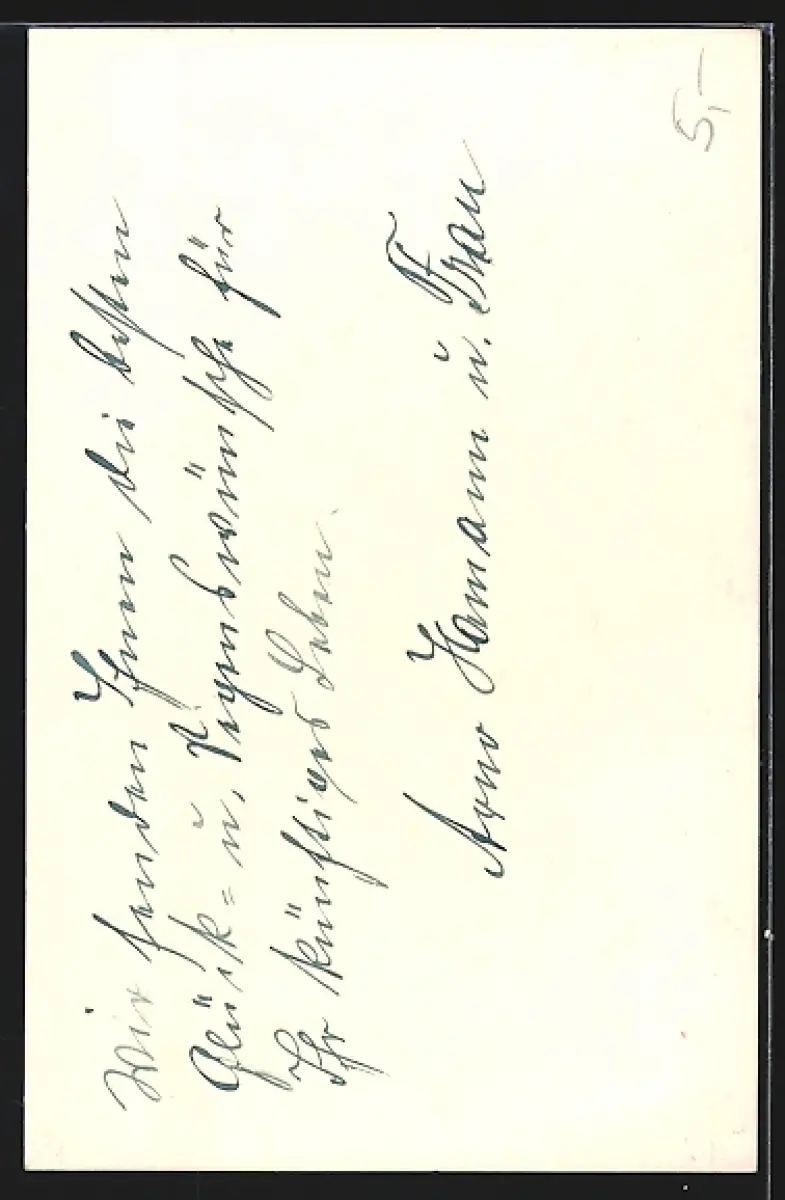 Wir senden Ihnen die besten
Glück= u. Segenswünsche für
Ihr künftiges Leben.
Arno Hamann u. Frau
5,-